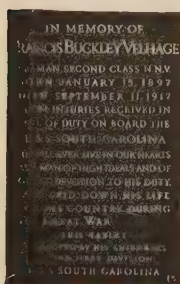 IN MEMORY OF
FRANCIS BUCKLEY VELHAGE
SEAMAN SECOND CLASS N.N.V.
BORN JANUARY 15, 1897
DIED SEPTEMBER 11, 1917
INJURIES RECEIVED IN
OF DUTY ON BOARD THE
U.S.S. SOUTH CAROLINA
EVER LIVE IN OUR HEARTS
MAN OF HIGH IDEALS AND OF
DEVOTION TO HIS DUTY.
LAID DOWN HIS LIFE
COUNTRY DURING
WAR
THIS TABLET
BY HIS
DIVISION
SOUTH CAROLINA